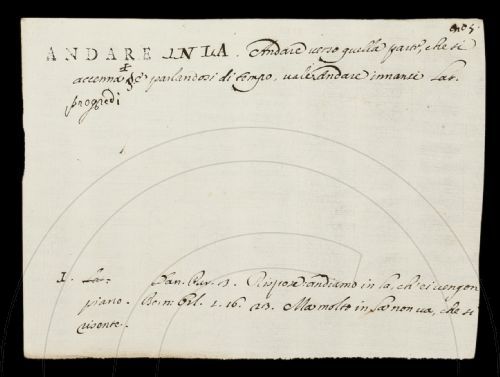 ANDARE IN LA. Andare verso quella parte, che si
accenna, e parlandosi di tempo, vale andare innanzi Lat.
progredi
1. Dan. Pur. 3. Rispose: andiamo in la, ch' ei vengon
piano. Bern. Orl. 1. 16. 23. Ma molto in là non va, che si
risente.